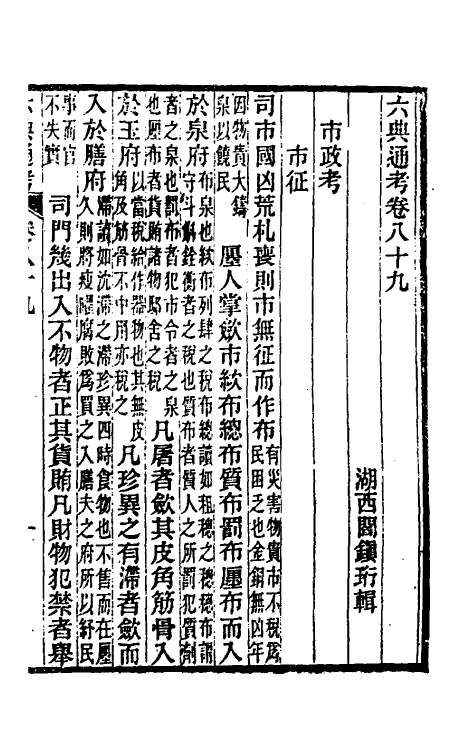 六典通考卷八十九
湖西閻鎮珩輯
市政考
市征
司市國凶荒札喪則市無征而作布有災害物貨市不稅爲民困乏也金銅無凶年
因物貴大鑄泉以饒民廛人掌斂市絘布總布質布罰布廛布而入
於泉府布泉也絘布列肆之稅布總讀如租稯之稯稯布謂守斗斛銓衡者之稅也質布者質人之所罰犯質劑
者之泉也罰布者犯市令者之泉也廛布者貨賄諸物邸舍之稅凡屠者斂其皮角筋骨入
於玉府以當稅給作器物也其無皮角及筋骨不中用亦稅之凡珍異之有滯者斂而
入於膳府滯讀如沈滯之滯珍異四時食物也不售而在廛久則將瘦臞腐敗爲買之入膳夫之府所以紓民
事而官不失實司門幾出入不物者正其貨賄凡財物犯禁者舉
六典通考 卷八十九 一